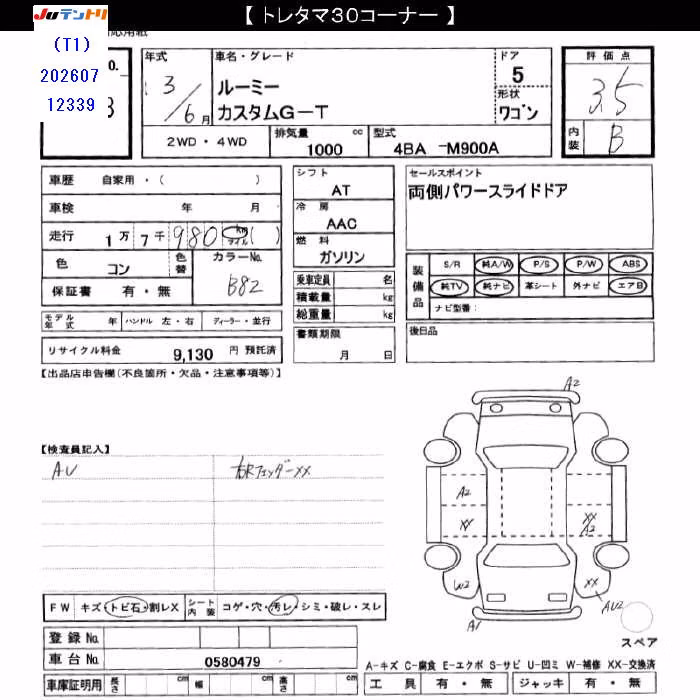 【 トレタマ30コーナー 】
JUテントリ
(T1)
202607
12339
応用紙
o.
3
年式
3/6月
車名・グレード
ルーミー
カスタムG-T
ドア
5
形状
ワゴン
評価点
3.5
内装
B
2WD・4WD
排気量
1000
cc
型式
4BA -M900A
車歴 自家用・( )
車検 年 月
走行 1万7千980 km マイル ( )
色 コン
色替
カラーNo.
B82
保証書 有・無
シフト
AT
冷房
AAC
燃料
ガソリン
セールスポイント
両側パワースライドドア
乗車定員 名
積載量 kg
総重量 kg
装備品
S/R 純A/W P/S P/W ABS
純TV 純ナビ 革シート 外ナビ エアB
ナビ型番:
モデル年式 年 ハンドル 左・右 ディーラー・並行
書類期限
月 日
後日品
リサイクル料金 9,130 円 預託済
【出品店申告欄(不良箇所・欠品・注意事項等)】
【検査員記入】
AU
右Rフェンダー××
A2
A2
XX
XX
A2
W2
XX
AU2
A1
スペア
FW キズ・トビ石・割レX シート内装 コゲ・穴・汚レ・シミ・破レ・スレ
登録No.
車台No. 0580479
車庫証明用 長さ cm 幅 cm 高さ cm
A-キズ C-腐食 E-エクボ S-サビ U-凹ミ W-補修 XX-交換済
工具 有・無 ジャッキ 有・無